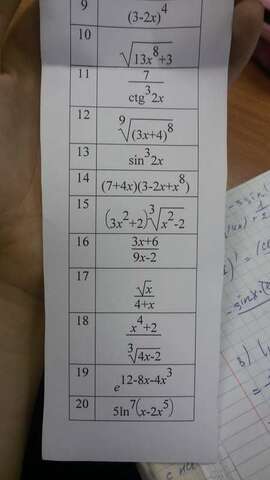 9 (3-2x)^4
10 √(13x^8+3)
11 7/(ctg^3 2x)
12 ⁹√((3x+4)^8)
13 sin^3 2x
14 (7+4x)(3-2x+x^8)
15 (3x^2+2)³√(x^2-2)
16 (3x+6)/(9x-2)
17 √x/(4+x)
18 (x^4+2)/³√(4x-2)
19 e^(12-8x-4x^3)
20 5ln^7(x-2x^5)